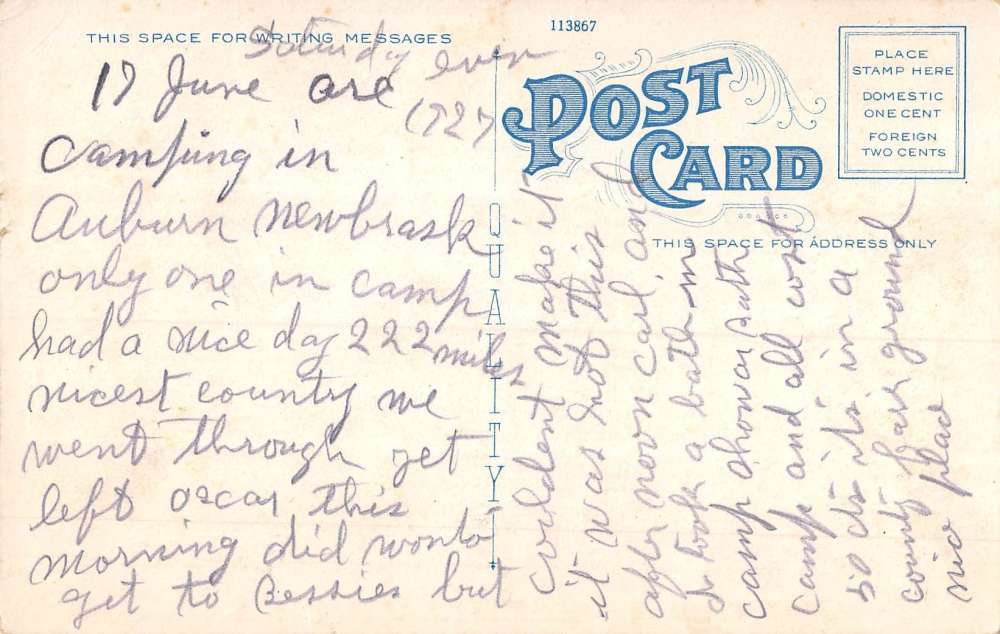 THIS SPACE FOR WRITING MESSAGES
113867
Saturday even
17 June are
1927
Camping in
Auburn Newbrask
only one in camp
had a nice day 222 miles
nicest country we
went through yet
left oscar this
morning did wonto
get to Bessies but
QUALITY
POST CARD
PLACE
STAMP HERE
DOMESTIC
ONE CENT
FOREIGN
TWO CENTS
THIS SPACE FOR ADDRESS ONLY
couldent make it
it was hot this
after noon carl and
I took a bath in
camp showar bath
camp and all cost
50 cts its in a
county fair ground
nice place